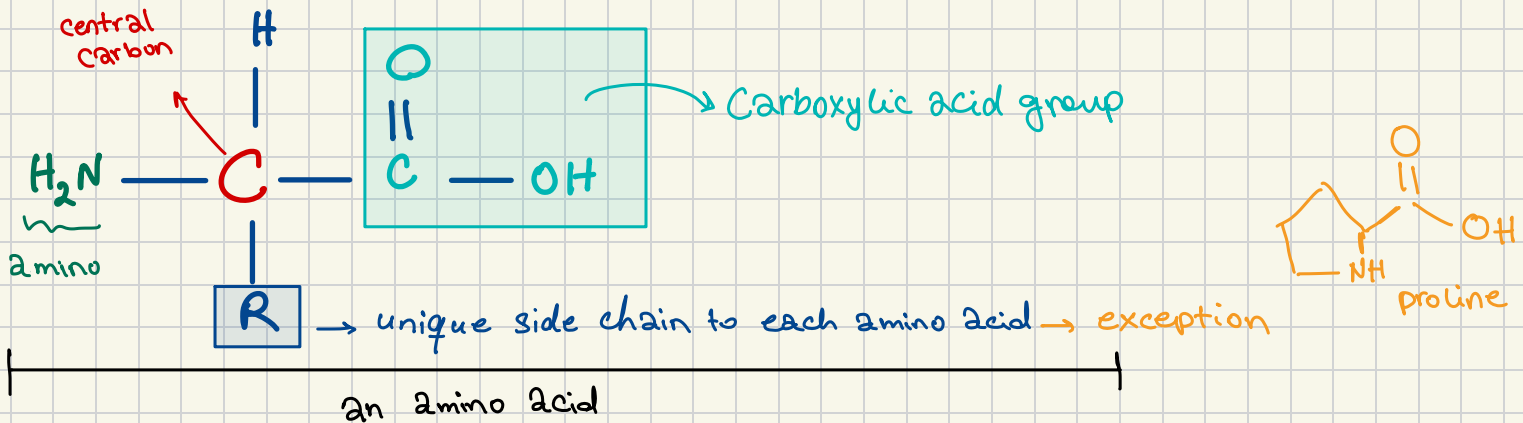 central
carbon
H
O
Carboxylic acid group
H2N
C
C
OH
amino
R
unique side chain to each amino acid → exception
O
OH
NH
proline
an amino acid